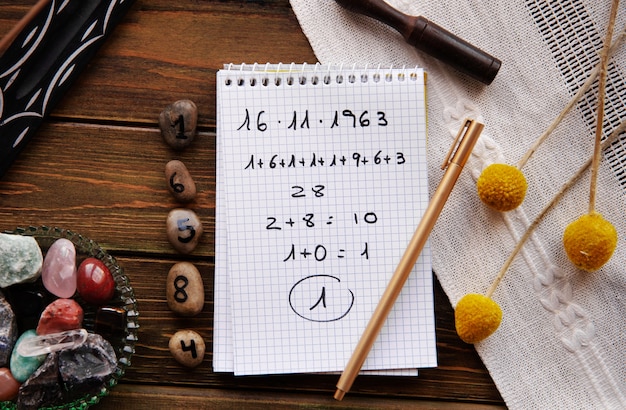 16 · 11 · 1963
1+6+1+1+1+9+6+3
28
2+8 = 10
1+0 = 1
1
1
6
5
8
4